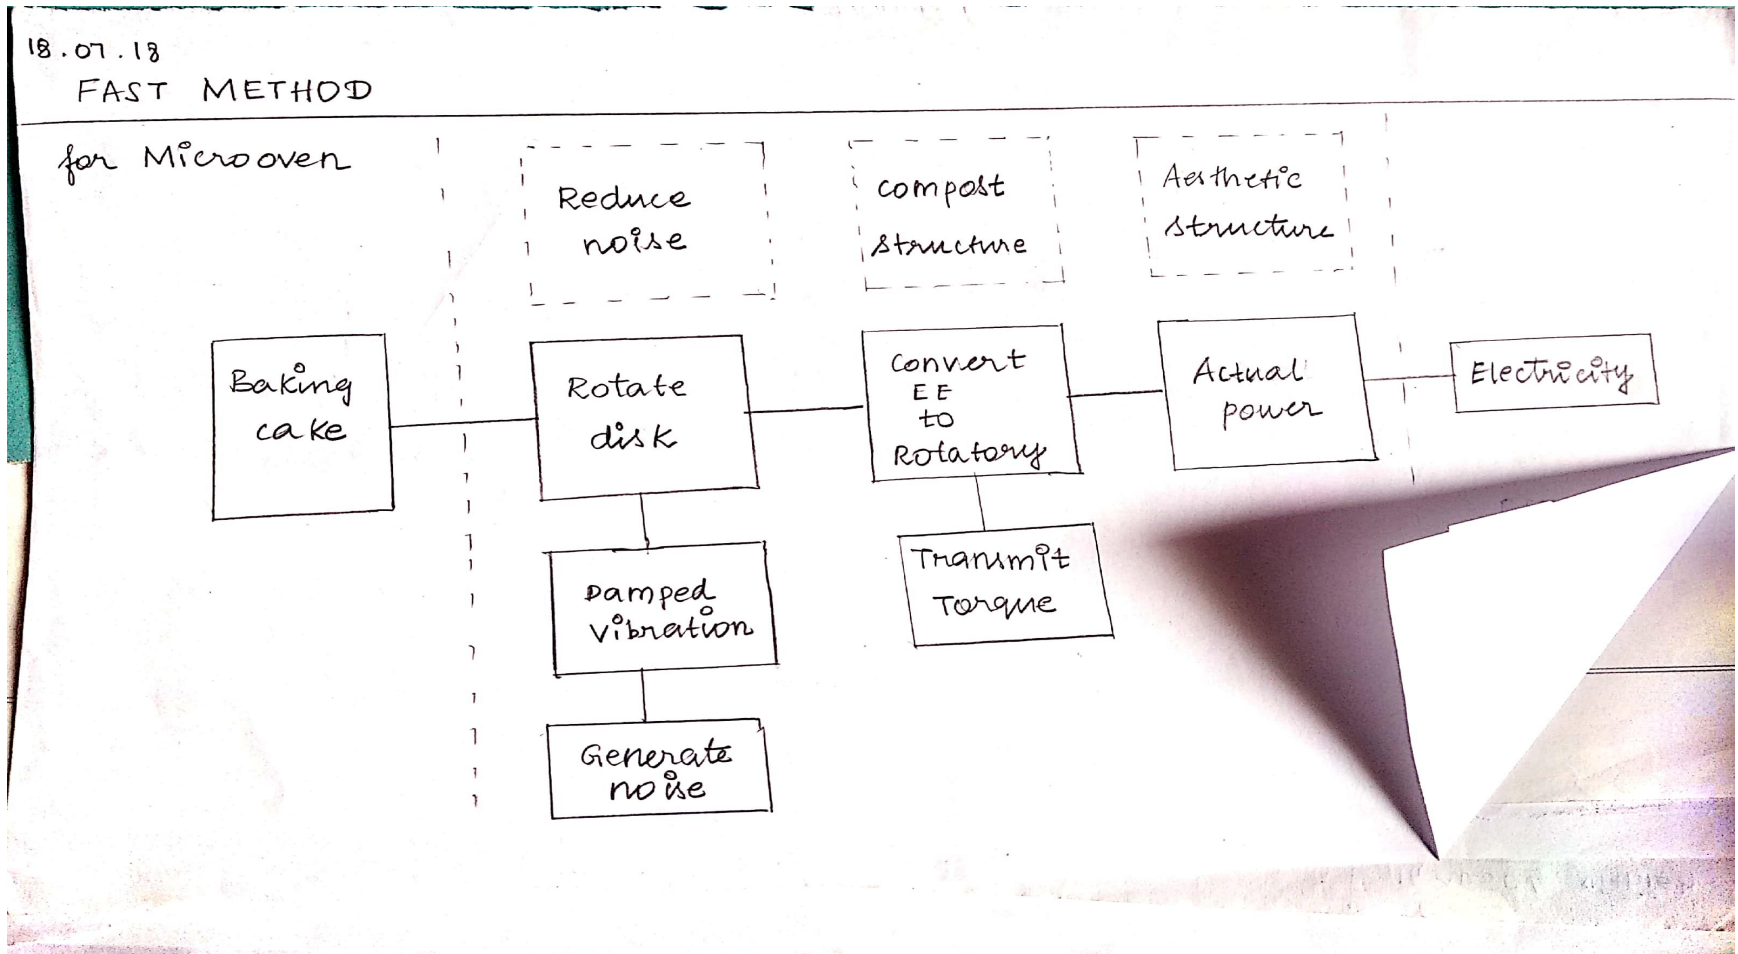 18.07.18
FAST METHOD
for Microoven
Reduce
noise
compost
structure
Aesthetic
structure
Baking
cake
Rotate
disk
Convert
EE
to
Rotatory
Actual
power
Electricity
Damped
vibration
Transmit
Torque
Generate
noise